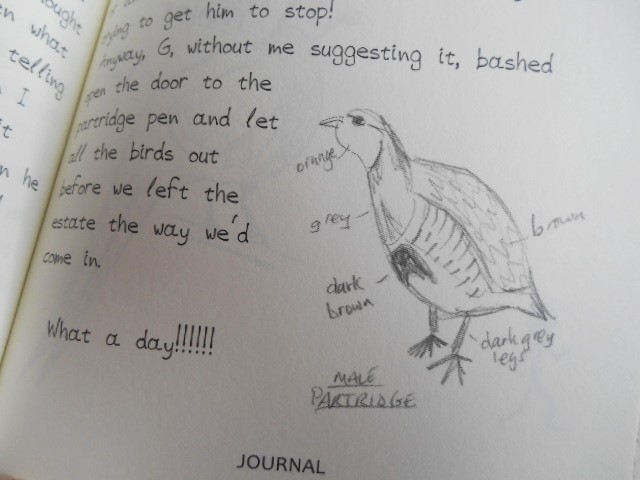 ought
n what
telling
I
it
n he
trying to get him to stop!
Anyway, G, without me suggesting it, bashed
open the door to the
partridge pen and let
all the birds out
before we left the
estate the way we'd
come in.
What a day!!!!!!
orange
grey
brown
dark
brown
dark grey
legs
MALE
PARTRIDGE
JOURNAL